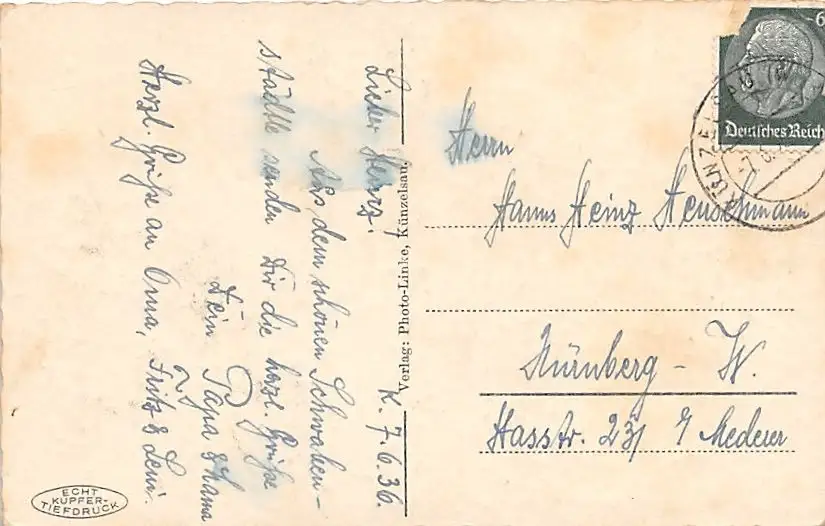 K. 7.6.36.
Lieber Heinz!
Aus dem schönen Schwaben-
städtle senden Dir die herzl. Grüße
Dein Papa & Mama
Herzl. Grüße an Oma, Fritz & Leni.
Verlag: Photo-Linke, Künzelsau
ECHT
KUPFER-
TIEFDRUCK
6
Deutsches Reich
KÜNZELSAU
-7.6.
Herrn
Hanns Heinz Heuschmann
Nürnberg - W.
Hasstr. 23/ Mederer